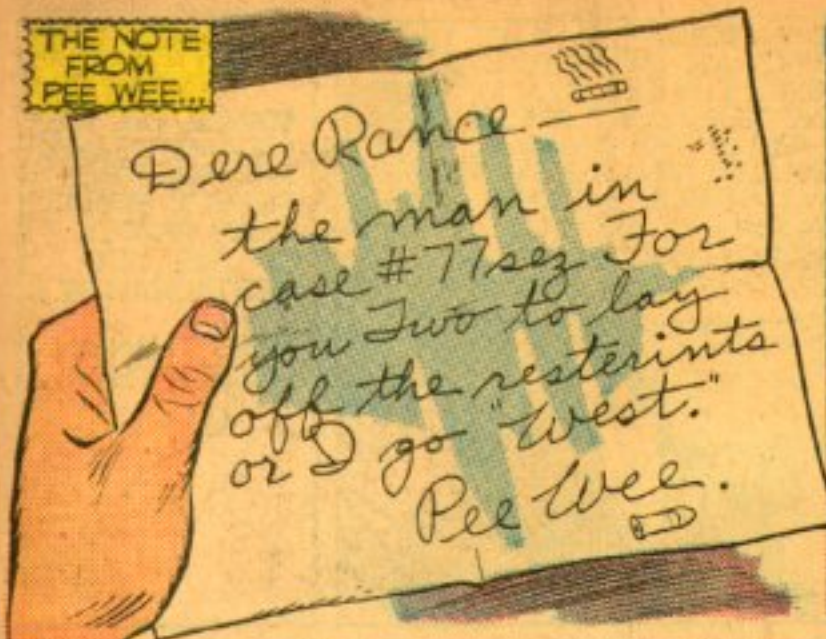 THE NOTE
FROM
PEE WEE...
Dere Rance
the man in
case #77 sez For
you Two to lay
off the resterints
or I go "West."
Pee Wee.